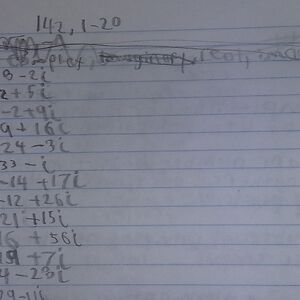 142, 1-20
complex, real,
8 - 2i
2 + 5i
-2 + 9i
9 + 16i
24 - 3i
33 - i
-14 + 17i
-12 + 26i
21 + 15i
16 + 56i
19 + 7i
4 - 23i
29 - 11i